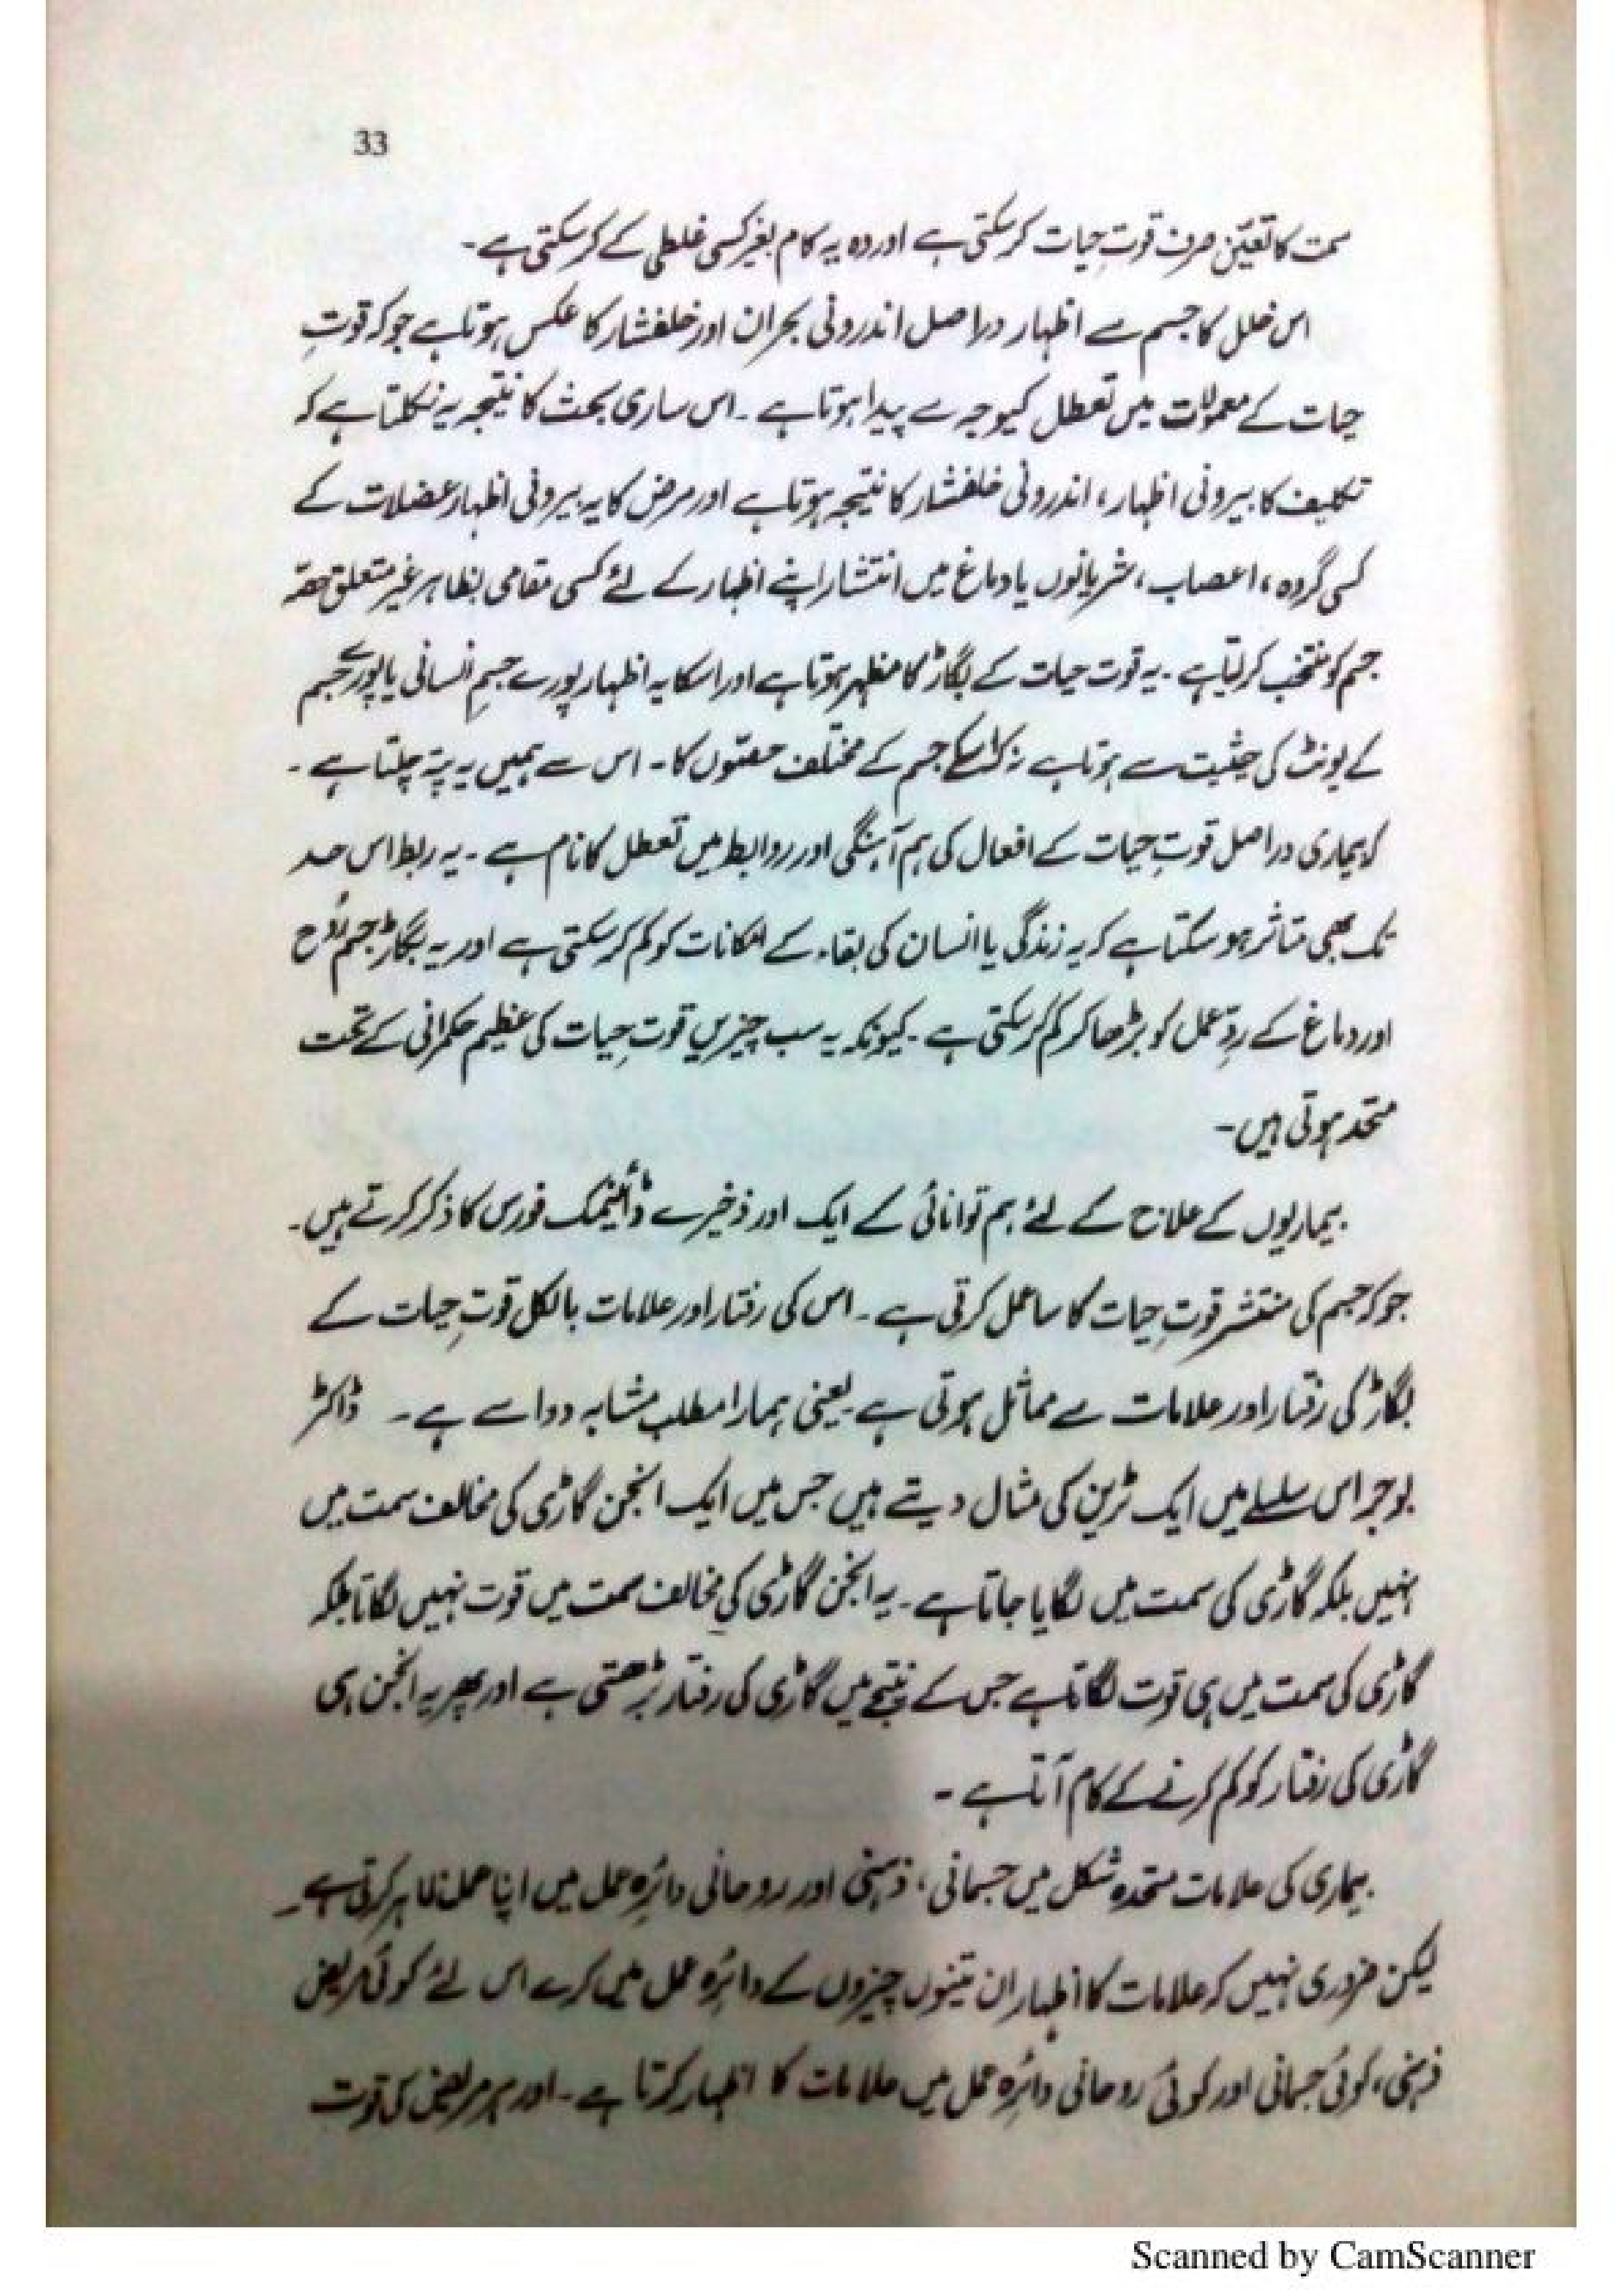 33
سمت کا تعیّن صرف قوتِ حیات کر سکتی ہے اور وہ یہ کام بغیر کسی غلطی کے کر سکتی ہے۔
اس خلل کا جسم سے اظہار دراصل اندرونی بحران اور خلفشار کا عکس ہوتا ہے جو کہ قوتِ
حیات کے معمولات میں تعطل کیوجہ سے پیدا ہوتا ہے۔ اس ساری بحث کا نتیجہ یہ نکلتا ہے کہ
تکلیف کا بیرونی اظہار، اندرونی خلفشار کا نتیجہ ہوتا ہے اور مرض کا یہ بیرونی اظہار عضلات کے
کسی گروہ، اعصاب، شریانوں یا دماغ میں انتشار اپنے اظہار کے لئے کسی مقامی بظاہر غیر متعلق حصّہ
جسم کو منتخب کر لیتا ہے۔ یہ قوت حیات کے بگاڑ کا مظہر ہوتا ہے اور اسکا یہ اظہار پورے جسمِ انسانی یا پورے جسم
کے یونٹ کی حیثیت سے ہوتا ہے نہ کہ اسکے جسم کے مختلف حصّوں کا۔ اس سے ہمیں یہ پتہ چلتا ہے۔
کہ بیماری دراصل قوتِ حیات کے افعال کی ہم آہنگی اور روابط میں تعطل کا نام ہے۔ یہ ربط اس حد
تک بھی متاثر ہو سکتا ہے کہ یہ زندگی یا انسان کی بقاء کے امکانات کو کم کر سکتی ہے اور یہ بگاڑ جسم رُوح
اور دماغ کے ردِّ عمل کو بڑھا کر کم کر سکتی ہے۔ کیونکہ یہ سب چیزیں قوتِ حیات کی عظیم حکمرانی کے تحت
متحد ہوتی ہیں۔
بیماریوں کے علاج کے لئے ہم توانائی کے ایک اور ذخیرے ڈائینمک فورس کا ذکر کرتے ہیں۔
جو کہ جسم کی منتشر قوتِ حیات کا سا عمل کرتی ہے۔ اس کی رفتار اور علامات بالکل قوتِ حیات کے
بگاڑ کی رفتار اور علامات سے مماثل ہوتی ہے۔ یعنی ہمارا مطلب مشابہ دوا سے ہے۔ ڈاکٹر
بوجر اس سلسلے میں ایک ٹرین کی مثال دیتے ہیں جس میں ایک انجن گاڑی کی مخالف سمت میں
نہیں بلکہ گاڑی کی سمت میں لگایا جاتا ہے۔ یہ انجن گاڑی کی مخالف سمت میں قوت نہیں لگاتا بلکہ
گاڑی کی سمت میں ہی قوت لگاتا ہے جس کے نتیجے میں گاڑی کی رفتار بڑھتی ہے اور پھر یہ انجن ہی
گاڑی کی رفتار کو کم کرنے کے کام آتا ہے۔
بیماری کی علامات متحدہ شکل میں جسمانی، ذہنی اور روحانی دائرہ عمل میں اپنا عمل ظاہر کرتی ہے۔
لیکن ضروری نہیں کہ علامات کا اظہار ان تینوں چیزوں کے دائرہ عمل میں کرے اس لئے کوئی مریض
ذہنی، کوئی جسمانی اور کوئی روحانی دائرہ عمل میں علامات کا اظہار کرتا ہے۔ اور ہر مریض کی قوت
Scanned by CamScanner